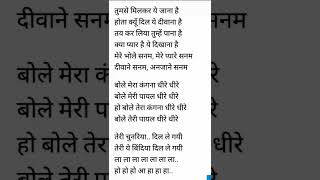 तुमसे मिलकर ये जाना है
होता क्यूँ दिल ये दीवाना है
तय कर लिया तुम्हें पाना है
क्या प्यार है ये दिखाना है
मेरे भोले सनम, मेरे प्यारे सनम
दीवाने सनम, अनजाने सनम
बोले मेरा कंगना धीरे धीरे
बोले मेरी पायल धीरे धीरे
हो बोले तेरा कंगना धीरे धीरे
बोले तेरी पायल धीरे धीरे
तेरी चुनरिया.. दिल ले गयी
तेरी ये बिंदिया दिल ले गयी
ला ला ला ला ला ला ला..
हो हो हो आ हा हा हा..